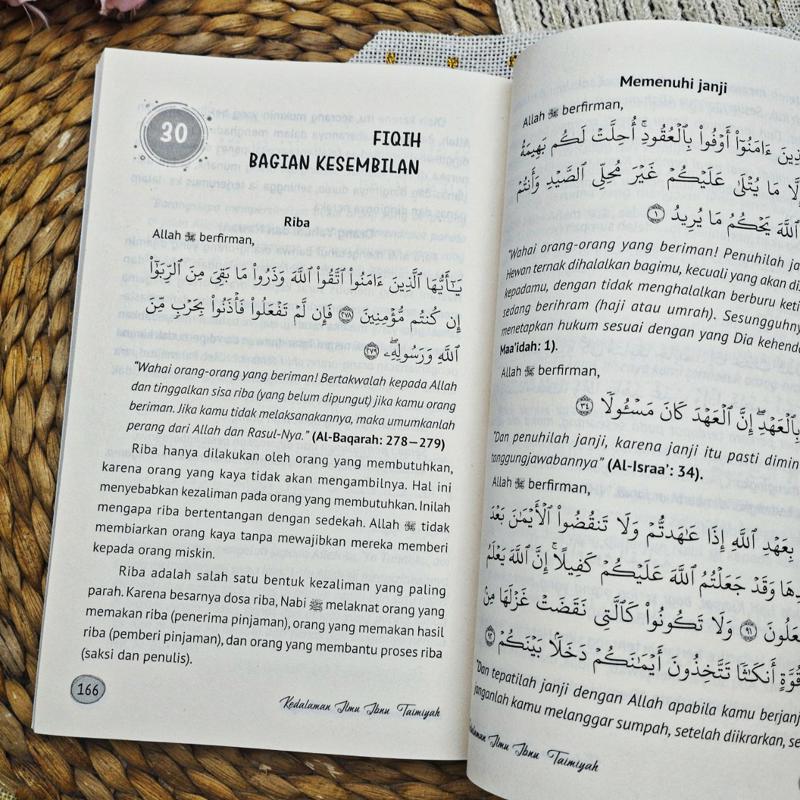 30
FIQIH
BAGIAN KESEMBILAN
Riba
Allah ﷻ berfirman,
يَـٰٓأَيُّهَا ٱلَّذِينَ ءَامَنُوا۟ ٱتَّقُوا۟ ٱللَّهَ وَذَرُوا۟ مَا بَقِىَ مِنَ ٱلرِّبَوٰٓا۟
إِن كُنتُم مُّؤْمِنِينَ ٢٧٨ فَإِن لَّمْ تَفْعَلُوا۟ فَأْذَنُوا۟ بِحَرْبٍ مِّنَ
ٱللَّهِ وَرَسُولِهِۦ ۖ ٢٧٩
"Wahai orang-orang yang beriman! Bertakwalah kepada Allah
dan tinggalkan sisa riba (yang belum dipungut) jika kamu orang
beriman. Jika kamu tidak melaksanakannya, maka umumkanlah
perang dari Allah dan Rasul-Nya." (Al-Baqarah: 278–279)
Riba hanya dilakukan oleh orang yang membutuhkan,
karena orang yang kaya tidak akan mengambilnya. Hal ini
menyebabkan kezaliman pada orang yang membutuhkan. Inilah
mengapa riba bertentangan dengan sedekah. Allah ﷻ tidak
membiarkan orang kaya tanpa mewajibkan mereka memberi
kepada orang miskin.
Riba adalah salah satu bentuk kezaliman yang paling
parah. Karena besarnya dosa riba, Nabi ﷺ melaknat orang yang
memakan riba (penerima pinjaman), orang yang memakan hasil
riba (pemberi pinjaman), dan orang yang membantu proses riba
(saksi dan penulis).
166
Kedalaman Ilmu Ibnu Taimiyah
Memenuhi janji
Allah ﷻ berfirman,
ءَامَنُوٓا۟ أَوْفُوا۟ بِٱلْعُقُودِ ۚ أُحِلَّتْ لَكُم بَهِيمَةُ
مَا يُتْلَىٰ عَلَيْكُمْ غَيْرَ مُحِلِّى ٱلصَّيْدِ وَأَنتُمْ
ٱللَّهَ يَحْكُمُ مَا يُرِيدُ ١
"Wahai orang-orang yang beriman! Penuhilah
Hewan ternak dihalalkan bagimu, kecuali yang akan
kepadamu, dengan tidak menghalalkan berburu
sedang berihram (haji atau umrah).
menetapkan hukum sesuai dengan yang Dia
Maa'idah: 1).
Allah ﷻ berfirman,
بِٱلْعَهْدِ ۖ إِنَّ ٱلْعَهْدَ كَانَ مَسْـُٔولًا ٣٤
"Dan penuhilah janji, karena janji itu pasti
(Al-Israa': 34).
Allah ﷻ berfirman,
بِعَهْدِ ٱللَّهِ إِذَا عَـٰهَدتُّمْ وَلَا تَنقُضُوا۟ ٱلْأَيْمَـٰنَ بَعْدَ
وَقَدْ جَعَلْتُمُ ٱللَّهَ عَلَيْكُمْ كَفِيلًا ۚ إِنَّ ٱللَّهَ يَعْلَمُ
٩١ وَلَا تَكُونُوا۟ كَٱلَّتِى نَقَضَتْ غَزْلَهَا مِنۢ
قُوَّةٍ أَنكَـٰثًا تَتَّخِذُونَ أَيْمَـٰنَكُمْ دَخَلًۢا بَيْنَكُمْ ٩٢
"Dan tepatilah janji dengan Allah apabila kamu
janganlah kamu melanggar sumpah, setelah diikrarkan,
Ilmu Ibnu Taimiyah